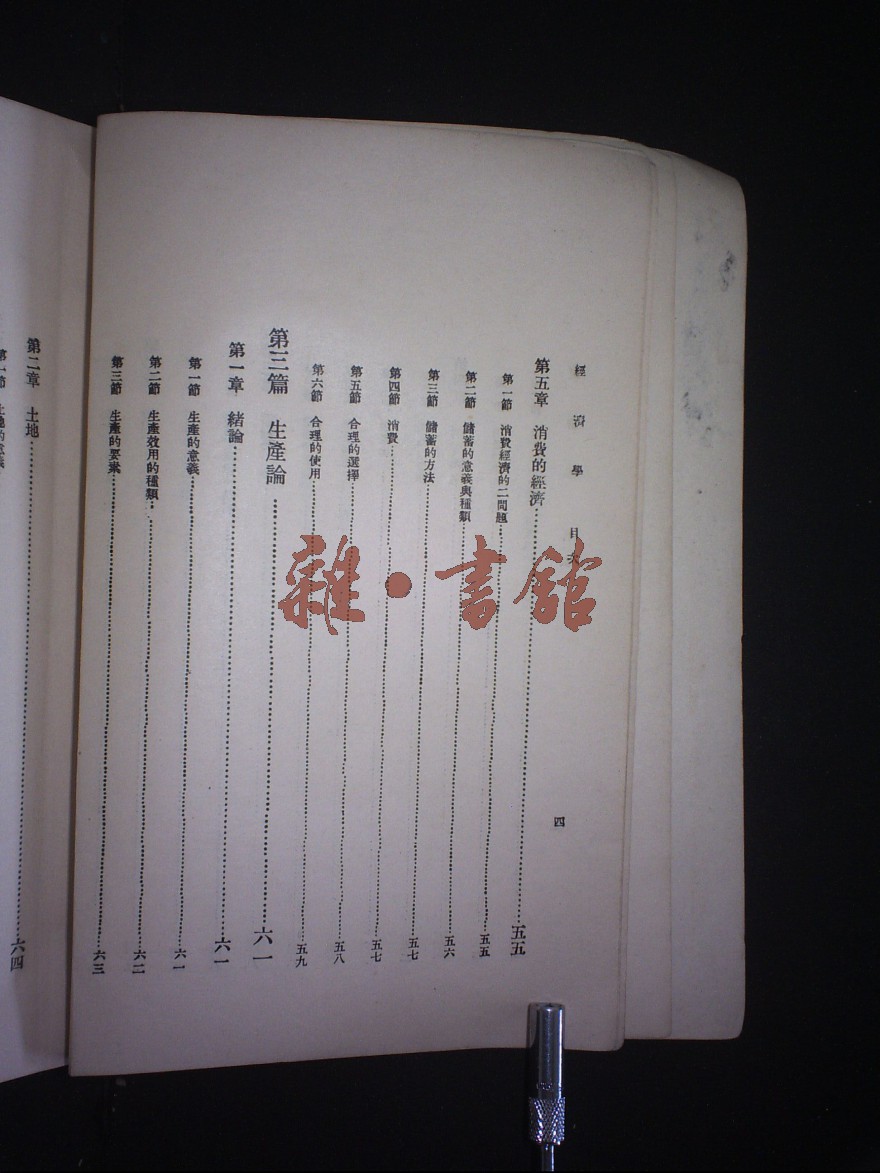 經濟學 目次
四
第五章 消費的經濟 五五
第一節 消費經濟的二問題 五五
第二節 儲蓄的意義與種類 五六
第三節 儲蓄的方法 五七
第四節 消費 五七
第五節 合理的選擇 五八
第六節 合理的使用 五九
第三篇 生產論 六一
第一章 緒論 六一
第一節 生產的意義 六一
第二節 生產效用的種類 六二
第三節 生產的要素 六三
第二章 土地 六四
第一節 土地的意義
雜·書館